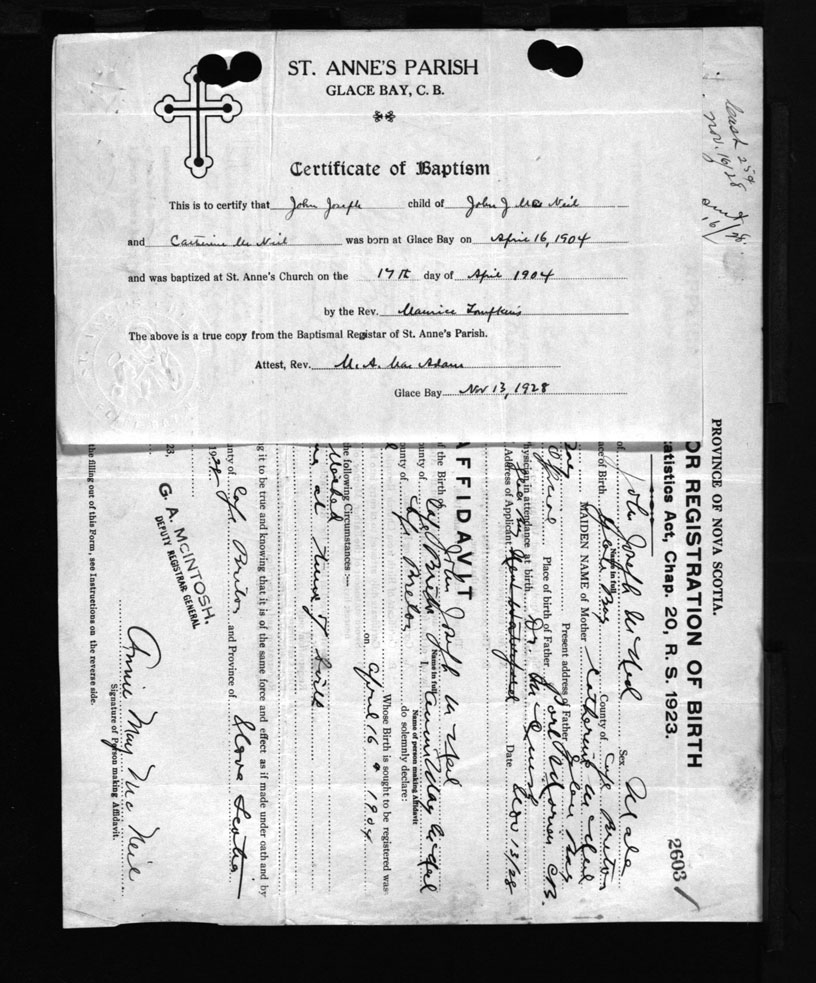 ST. ANNE'S PARISH
GLACE BAY, C. B.
Certificate of Baptism
This is to certify that John Joseph child of John J Mac Neil
and Catherine Mc Neil was born at Glace Bay on April 16, 1904
and was baptized at St. Anne's Church on the 17th day of April 1904
by the Rev. Maurice Tompkins
The above is a true copy from the Baptismal Registar of St. Anne's Parish.
Attest, Rev. M. A. Mac Adam
Glace Bay Nov 13, 1928
Cash 25¢
Nov. 16/28
PROVINCE OF NOVA SCOTIA.
OR REGISTRATION OF BIRTH
tatistics Act, Chap. 20, R. S. 1923.
2603
of John Joseph Mc Neil Sex Male
Name in full
ace of Birth Glace Bay County of Cape Breton
MAIDEN NAME of Mother Catherine Mc Neil
Present address of Father Glace Bay
Place of birth of Father C.B.
hysician in attendance at birth Dr.
Address of Applicant New Waterford Date Nov 13/28
AFFIDAVIT
f the Birth of John Joseph Mc Neil
Name in full
I, Annie May Mc Neil
Name of person making Affidavit
ounty of Cape Breton
ounty of Cape Breton do solemnly declare:
Whose Birth is sought to be registered was
on April 16 1904
the following Circumstances :—
at time of birth
g it to be true and knowing that it is of the same force and effect as if made under oath and by
unty of Cape Breton and Province of Nova Scotia
1928
23,
G. A. McINTOSH,
DEPUTY REGISTRAR GENERAL
Annie May Mc Neil
Signature of Person making Affidavit.
the filling out of this Form, see Instructions on the reverse side.